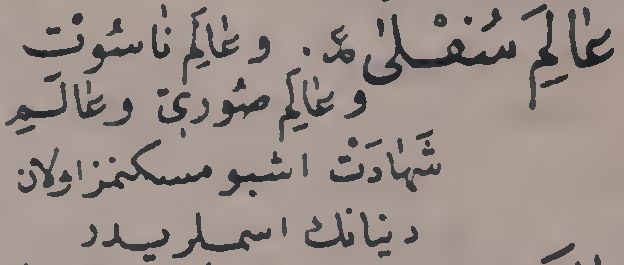 عَالَمِ سُفْلٰى . و عالَمِ نَاسُوتْ
و عالَمِ صُورِى و عالَمِ
شَهَادَتْ اشبو مسكنمز اولان
دنيانك اسملريدر